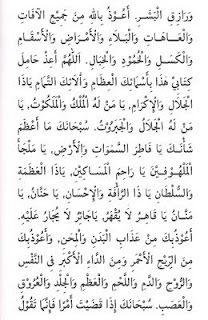 وَرَازِقِ الْبَشَرِ. أَعُوْذُ بِاللهِ مِنْ جَمِيْعِ الْآفَاتِ
وَالْعَاهَاتِ وَالْبَلَاءِ وَالْأَمْرَاضِ وَالْأَسْقَامِ
وَالْكَسَلِ وَالْخُمُوْدِ وَالْخَبَالِ. اَللّٰهُمَّ أَعِذْ حَامِلَ
كِتَابِيْ هٰذَا بِأَسْمَائِكَ الْعِظَامِ وَآلَائِكَ التَّمَامِ يَاذَا
الْجَلَالِ وَالْإِكْرَامِ. يَا مَنْ لَهُ الْمُلْكُ وَالْمَلَكُوْتُ، يَا
مَنْ لَهُ الْجَلَالُ وَالْجَبَرُوْتُ. سُبْحَانَكَ مَا أَعْظَمَ
شَأْنَكَ يَا فَاطِرَ السَّمَوَاتِ وَالْأَرْضِ، يَا مَلْجَأَ
الْمَلْهُوْفِيْنَ يَا رَاحِمَ الْمَسَاكِيْنِ، يَاذَا الْعَظَمَةِ
وَالسُّلْطَانِ يَا ذَا الرَّأْفَةِ وَالْإِحْسَانِ، يَا حَنَّانُ، يَا
مَنَّانُ يَا قَاهِرُ لَا يُقْهَرُ. يَاجَائِرُ لَا يُجَارُ عَلَيْهِ.
أَعُوْذُ بِكَ مِنْ عَذَابِ الْبَدَنِ وَالْمِحَنِ، وَأَعُوْذُ بِكَ
مِنَ الرِّيْحِ الْأَحْمَرِ وَمِنَ الدَّاءِ الْأَكْبَرِ فِي النَّفْسِ
وَالرُّوْحِ وَالدَّمِ وَاللَّحْمِ وَالْعَظْمِ وَالْجِلْدِ وَالْعُرُوْقِ
وَالْعَصَبِ. سُبْحَانَكَ إِذَا قَضَيْتَ أَمْرًا فَإِنَّمَا تَقُوْلُ